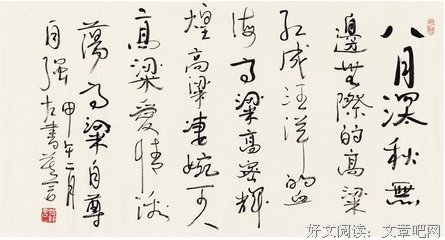 八月深秋無
邊無際的高粱
红成汪洋的血
海高粱高密輝
煌高粱凄婉可人
高粱愛情激
蕩高粱自尊
自强
甲午二月
左書莫言
好文阅读：文章吧网